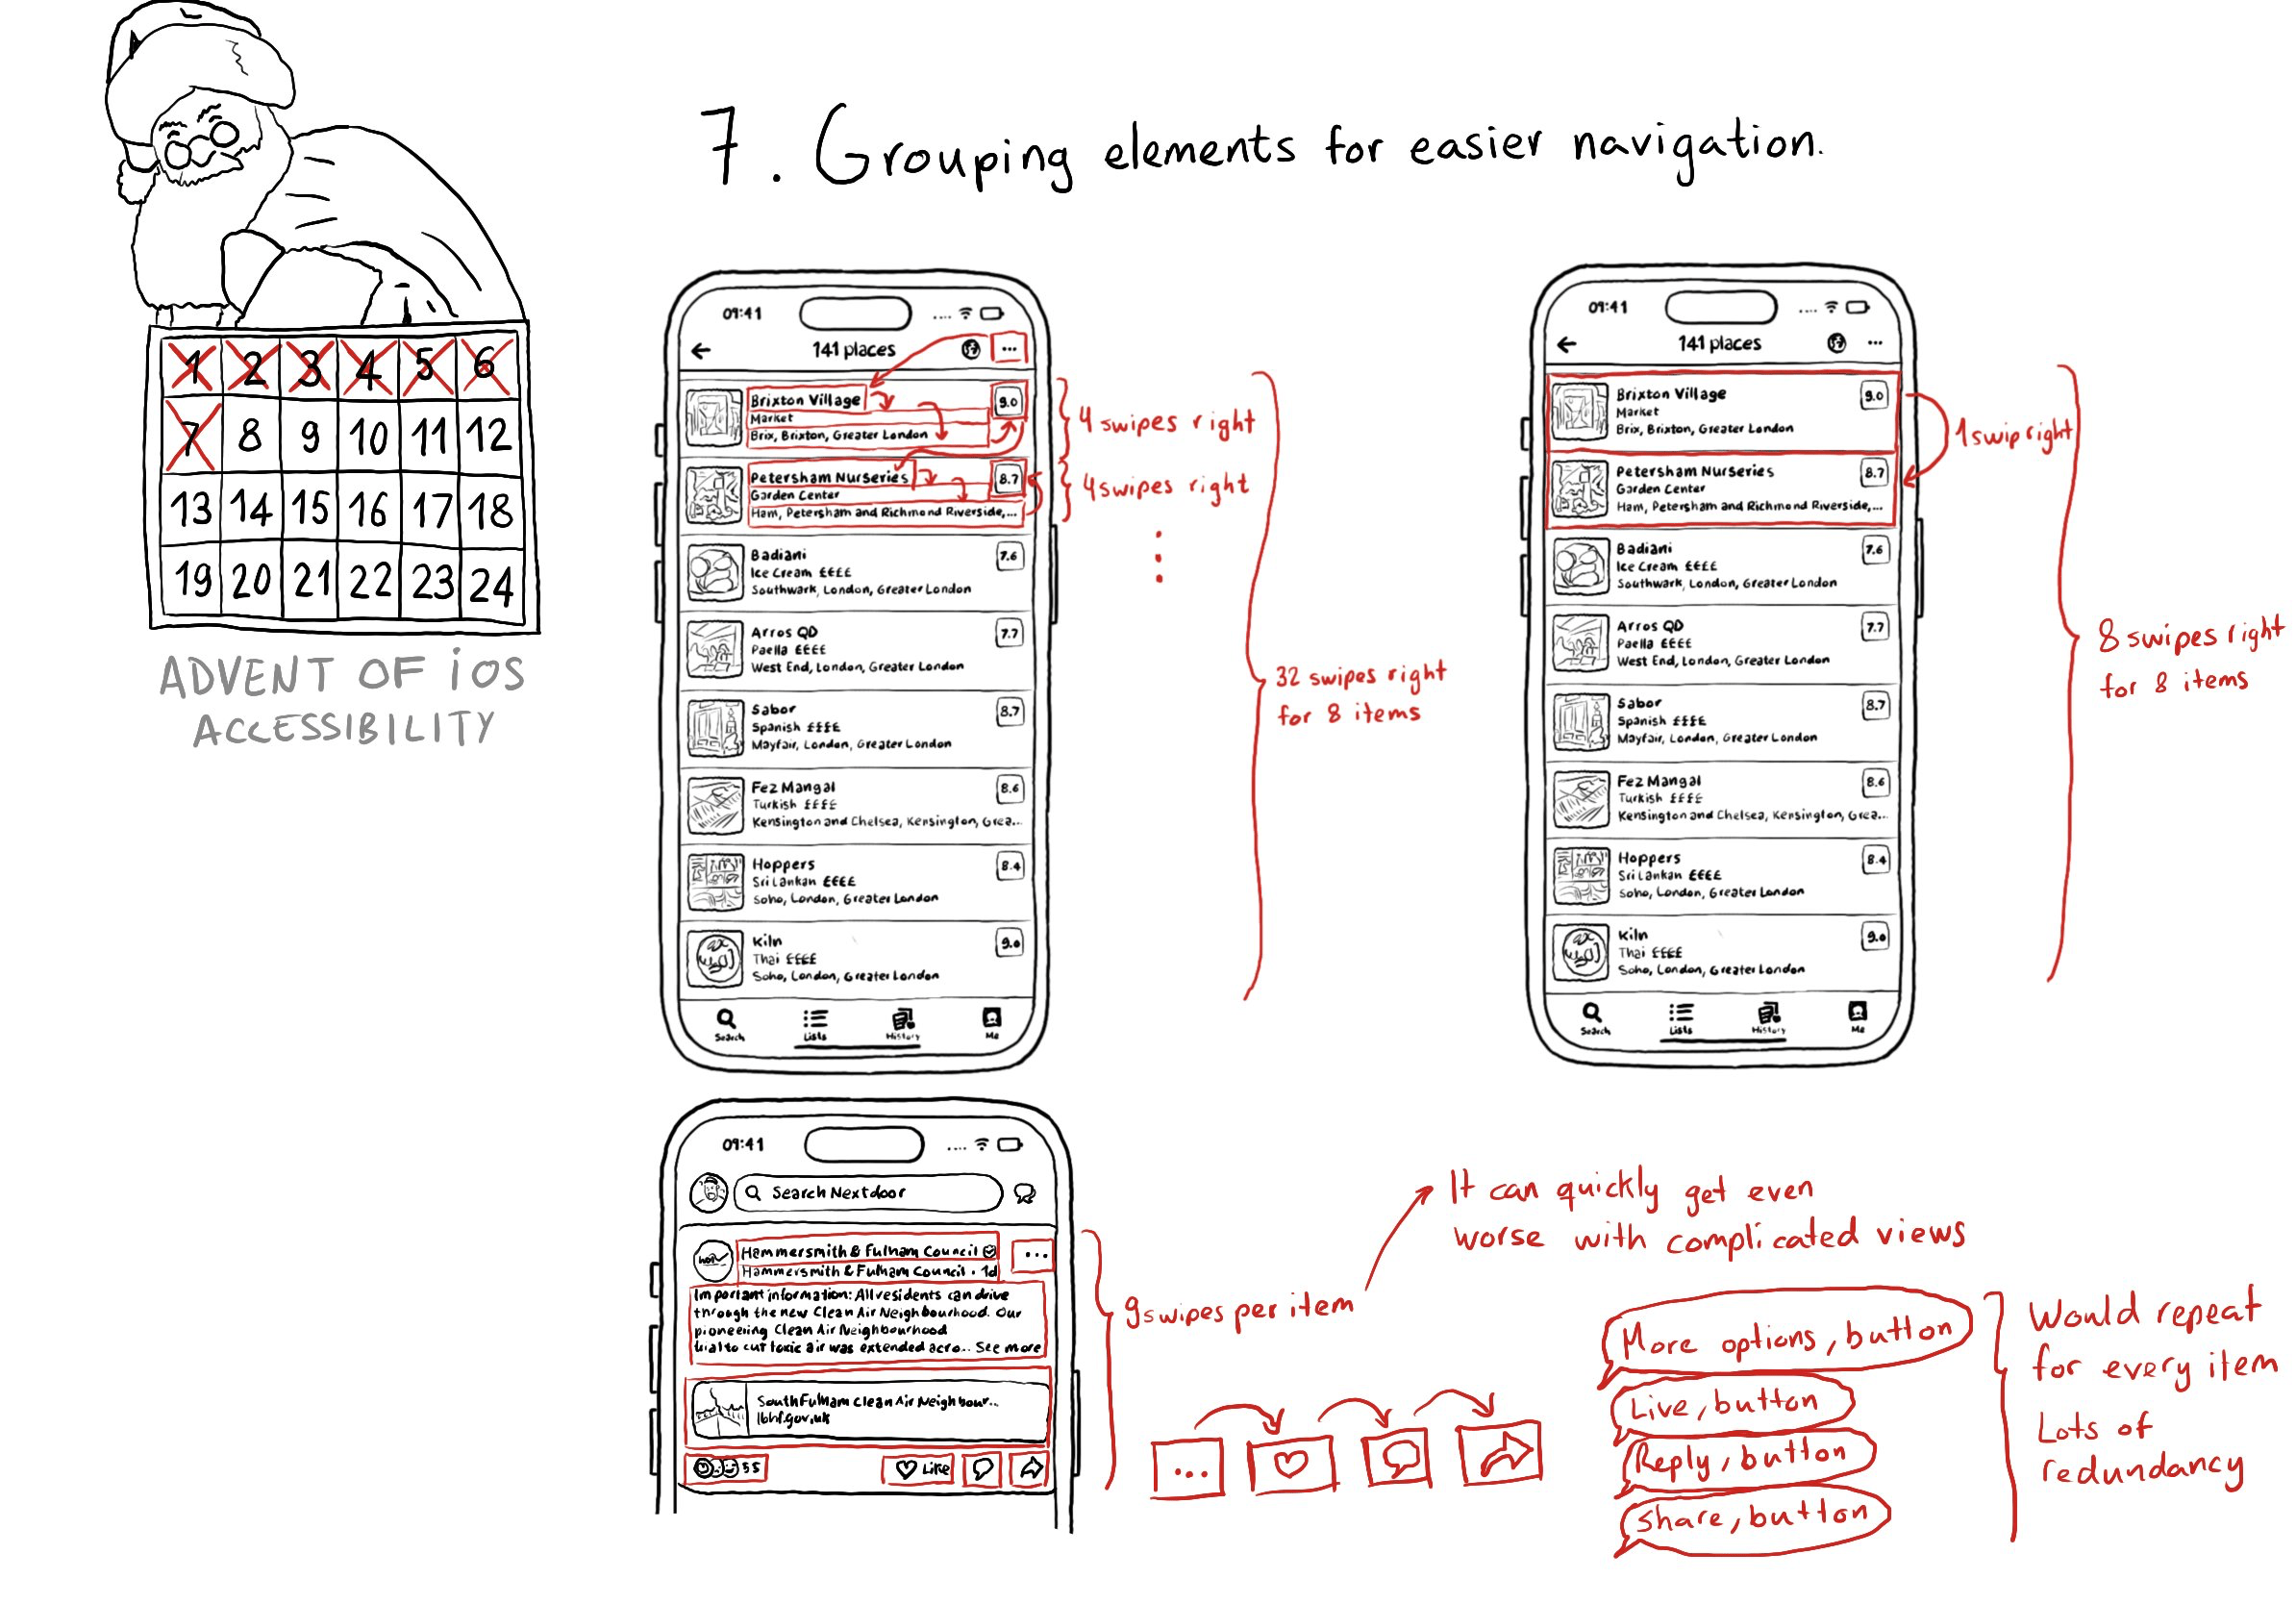 7. Grouping elements for easier navigation.
1 2 3 4 5 6
7 8 9 10 11 12
13 14 15 16 17 18
19 20 21 22 23 24
ADVENT OF iOS
ACCESSIBILITY
09:41
141 places
Brixton Village
9.0
Market
Brix, Brixton, Greater London
Petersham Nurseries
8.7
Garden Center
Ham, Petersham and Richmond Riverside,...
Badiani
7.6
Ice Cream ££££
Southwark, London, Greater London
Arros QD
7.7
Paella ££££
West End, London, Greater London
Sabor
8.7
Spanish ££££
Mayfair, London, Greater London
Fez Mangal
8.6
Turkish ££££
Kensington and Chelsea, Kensington, Grea...
Hoppers
8.4
Sri Lankan ££££
Soho, London, Greater London
Kiln
9.0
Thai ££££
Soho, London, Greater London
Search Lists History Me
4 swipes right
4 swipes right
32 swipes right
for 8 items
09:41
141 places
Brixton Village
9.0
Market
Brix, Brixton, Greater London
Petersham Nurseries
8.7
Garden Center
Ham, Petersham and Richmond Riverside,...
Badiani
7.6
Ice Cream ££££
Southwark, London, Greater London
Arros QD
7.7
Paella ££££
West End, London, Greater London
Sabor
8.7
Spanish ££££
Mayfair, London, Greater London
Fez Mangal
8.6
Turkish ££££
Kensington and Chelsea, Kensington, Grea...
Hoppers
8.4
Sri Lankan ££££
Soho, London, Greater London
Kiln
9.0
Thai ££££
Soho, London, Greater London
Search Lists History Me
1 swip right
8 swipes right
for 8 items
09:41
Search Nextdoor
Hammersmith & Fulham Council
Hammersmith & Fulham Council · 1d
Important information: All residents can drive
through the new Clean Air Neighbourhood. Our
pioneering Clean Air Neighbourhood
trial to cut toxic air was extended acro.. See more
South Fulham Clean Air Neighbour...
lbhf.gov.uk
55
Like
9 swipes per item
It can quickly get even
worse with complicated views
More options, button
Live, button
Reply, button
share, button
Would repeat
for every item
Lots of
redundancy